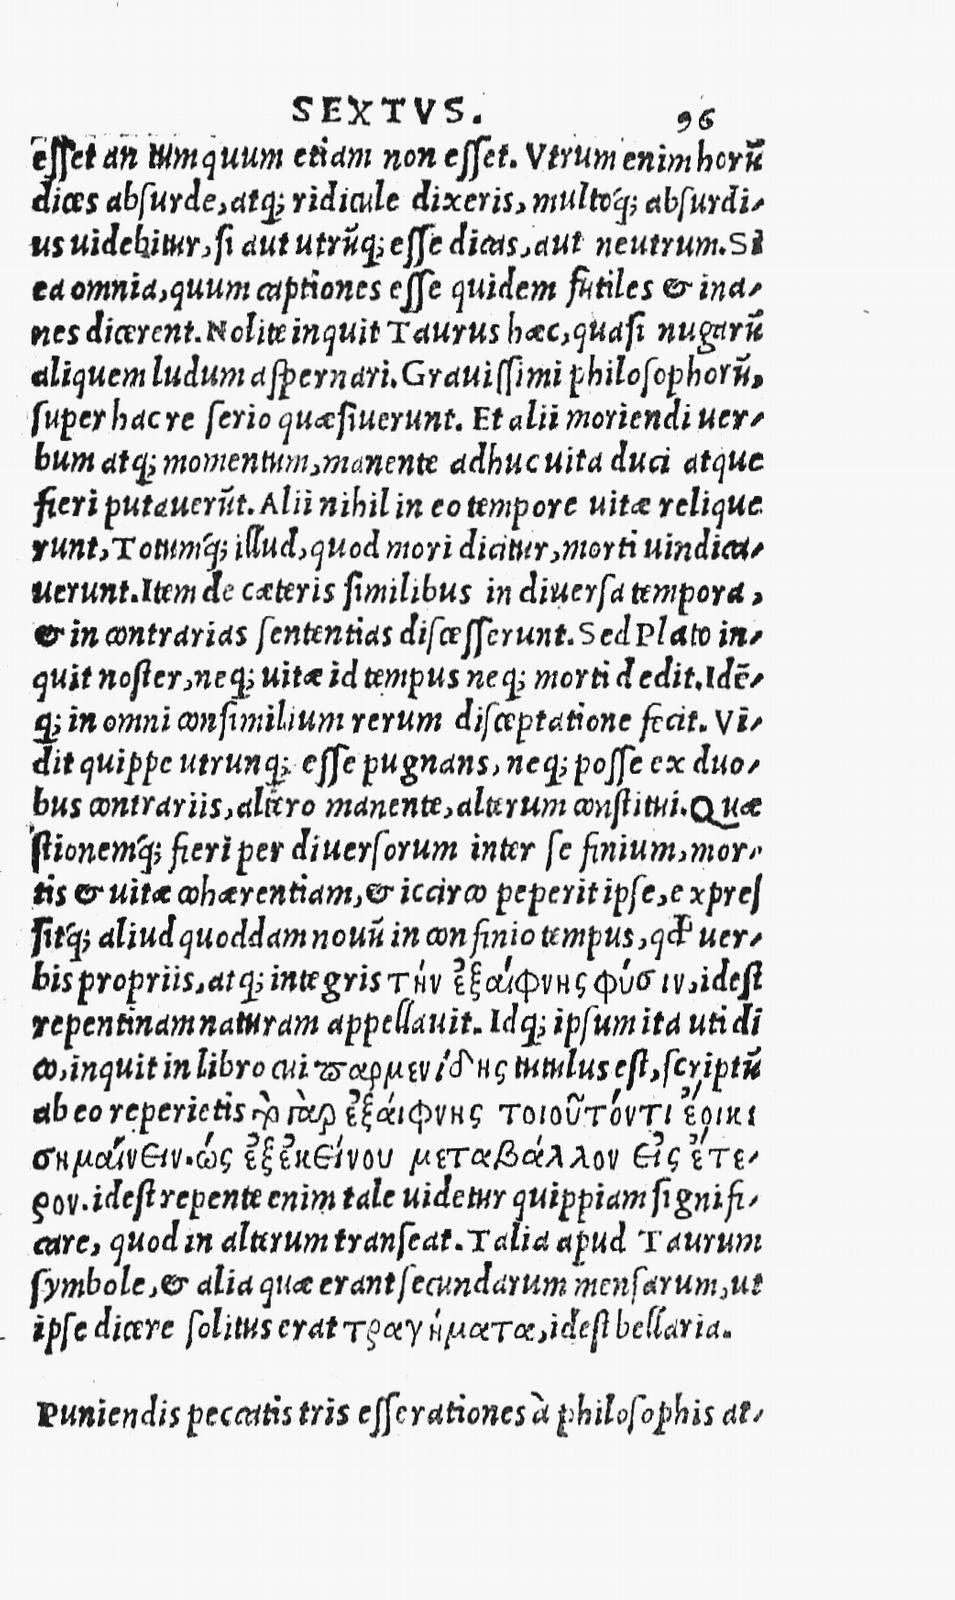 SEXTVS. 96
eſſet an tum quum etiam non eſſet. Vtrum enim horũ
dices abſurde, atq; ridicule dixeris, multoq́; abſurdi-
us uidebitur, ſi aut utrũq; eſſe dicas, aut neutrum. Si
ea omnia, quum captiones eſſe quidem futiles & ina-
nes dicerent. Nolite inquit Taurus hæc, quaſi nugarũ
aliquem ludum aſpernari. Grauiſſimi philoſophorũ,
ſuper hac re ſerio quæſiuerunt. Et alii moriendi uer-
bum atq; momentum, manente adhuc uita duci atque
fieri putauerũt. Alii nihil in eo tempore uitæ relique
runt, Totumq́; illud, quod mori dicitur, morti uindica-
uerunt. Item de cæteris ſimilibus in diuerſa tempora,
& in contrarias ſententias diſceſſerunt. Sed Plato in-
quit noſter, neq; uitæ id tempus neq; morti dedit. Idẽ-
q; in omni conſimilium rerum diſceptatione fecit. Vi-
dit quippe utrunq; eſſe pugnans, neq; poſſe ex duo-
bus contrariis, altero manente, alterum conſtitui. Quæ
ſtionemq́; fieri per diuerſorum inter ſe finium, mor-
tis & uitæ cohærentiam, & iccirco peperit ipſe, expreſ
ſitq́; aliud quoddam nouũ in confinio tempus, qđ uer-
bis propriis, atq; integris τήν ἐξαίφνης φύσιν, ideſt
repentinam naturam appellauit. Idq; ipſum ita uti di
co, inquit in libro cui παρμενίδης titulus eſt, ſcriptũ
ab eo reperietis ἐξάιφνης τοιοῦτόντι ἔοικε
σημαίνειν. ώς ἐξεκείνου μεταβάλλον εἰς ἕτε-
ρον. ideſt repente enim tale uidetur quippiam ſignifi-
care, quod in alterum tranſeat. Talia apud Taurum
ſymbole, & alia quæ erant ſecundarum menſarum, ut
ipſe dicere ſolitus erat τραγήματα, ideſt bellaria.
Puniendis peccatis tris eſſe rationes à philoſophis at-